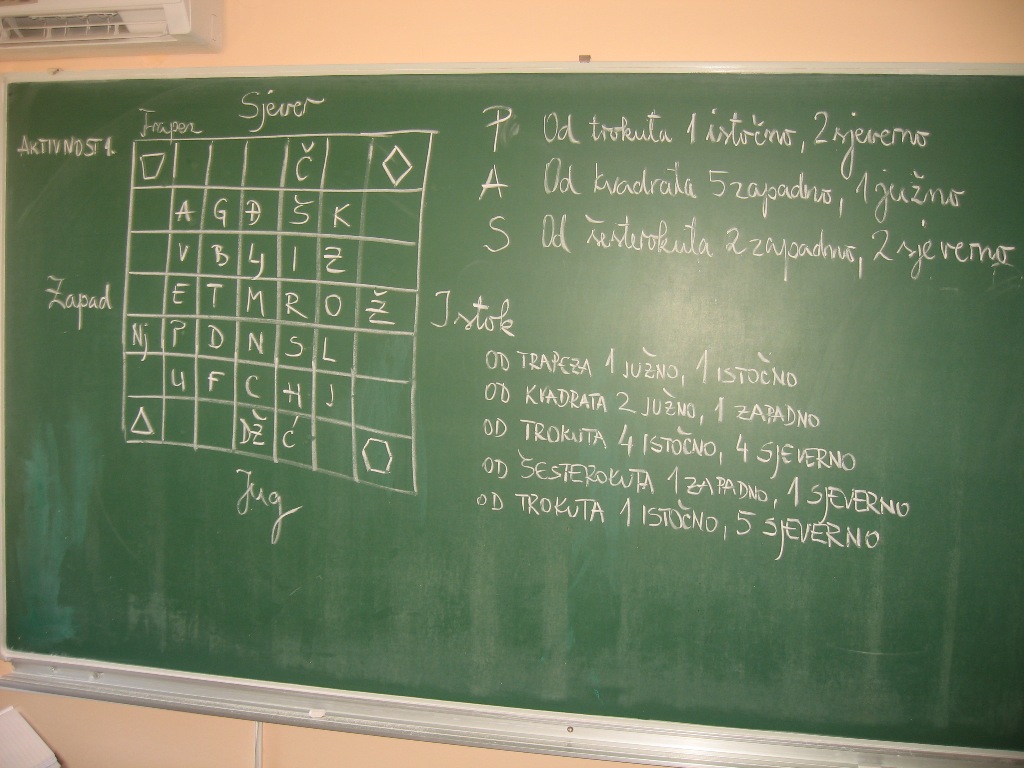 Sjever
Trapez
AKTIVNOST 1.
Č
A G Đ Š K
V B Lj I Z
Zapad
E T M R O Ž
Istok
Nj P D N S L
U F C H J
DŽ Ć
Jug
P Od trokuta 1 istočno, 2 sjeverno
A Od kvadrata 5 zapadno, 1 južno
S Od šesterokuta 2 zapadno, 2 sjeverno
OD TRAPEZA 1 JUŽNO, 1 ISTOČNO
OD KVADRATA 2 JUŽNO, 1 ZAPADNO
OD TROKUTA 4 ISTOČNO, 4 SJEVERNO
OD ŠESTEROKUTA 1 ZAPADNO, 1 SJEVERNO
OD TROKUTA 1 ISTOČNO, 5 SJEVERNO